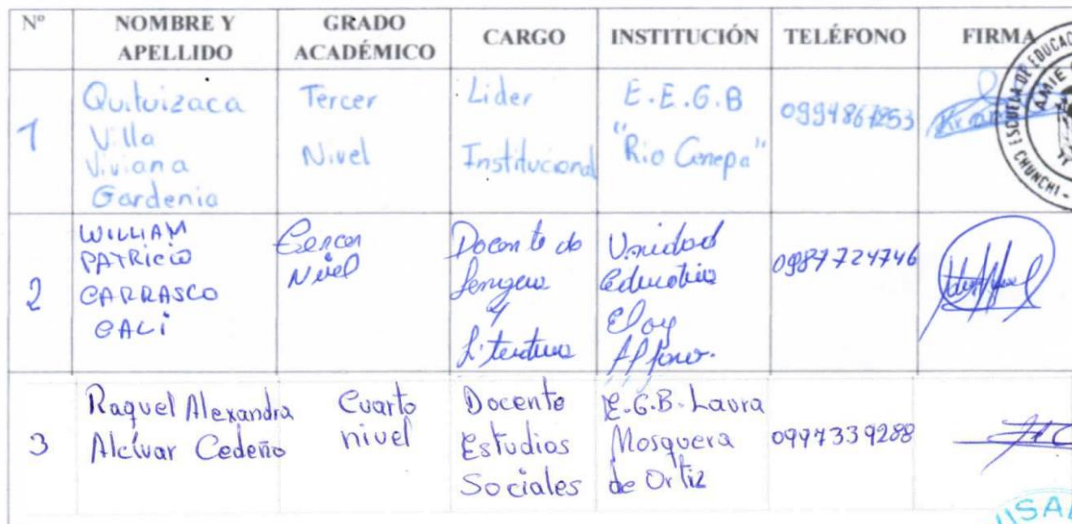 Nº NOMBRE Y APELLIDO GRADO ACADÉMICO CARGO INSTITUCIÓN TELÉFONO FIRMA
1
Quituizaca
Villa
Viviana
Gardenia
Tercer
Nivel
Lider
Institucional
E.E.G.B
"Rio Cenepa"
0994867253
ESCUELA DE EDUCAC
AMIE
CHUNCHI -
2
WILLIAM
PATRICIO
CARRASCO
CALI
Tercer
Nivel
Docente de
Lengua
y
Literatura
Unidad
Educativa
Eloy
Alfaro.
0987724746
3
Raquel Alexandra
Alcívar Cedeño
Cuarto
nivel
Docente
Estudios
Sociales
E.G.B. Laura
Mosquera
de Ortiz
0997339288